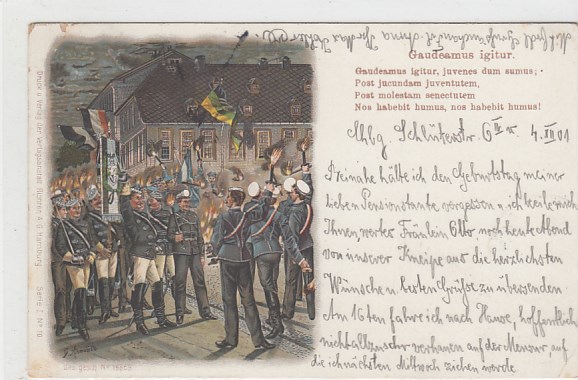 Gaudeamus igitur.
Gaudeamus igitur, juvenes dum sumus;
Post jucundam juventutem,
Post molestam senectutem
Nos habebit humus, nos habebit humus!
Chbg. Schlüterstr. 6 4. XII 01
Beinahe hätte ich den Geburtstag meiner
lieben Pensionstante vergessen u. ich beeile mich
Ihnen, werter Fräulein Otto noch heute Abend
von unserer Kneipe aus die herzlichsten
Wünsche u. besten Grüße zu übersenden
Am 16ten fahre ich nach Hause, hoffentlich
nicht allzusehr verhauen auf der Mensur, auf
die ich nächsten Mittwoch ziehen werde.
Druck u. Verlag der Verlagsanstalt Bürzzen A. G. Hamburg. Serie I N° 10
Ges. gesch. N°